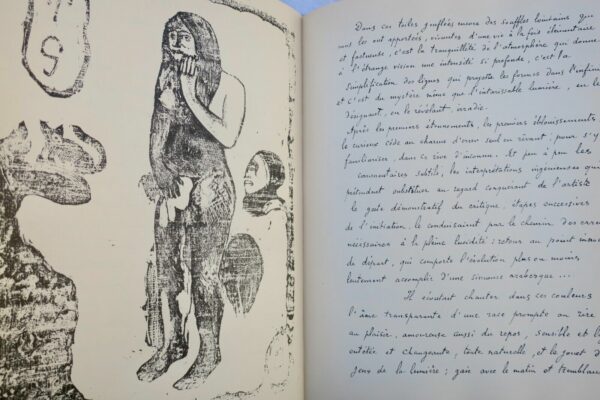 Dans ces toiles gonflées encore des souffles lointains qui
nous les ont apportées, vivantes d'une vie à la fois élémentaire
et fastueuse, c'est la tranquillité de l'atmosphère qui donne
à l'étrange vision une intensité si profonde, c'est la
simplification des lignes qui projette les formes dans l'infini
et c'est du mystère même que l'intarissable lumière, en le
désignant, en le révélant, irradie.
Après les premiers étonnements, les premiers éblouissements
le curieux cède au charme d'errer seul en rêvant, pour s'y
familiariser, dans ce rêve d'inconnu. Et peu à peu les
commentaires subtils, les interprétations ingénieuses qui
prétendent substituer au regard conquérant de l'artiste
le geste démonstratif du critique, étapes successives
de l'initiation, le conduisaient par le chemin des erreurs
nécessaires à la pleine lucidité : retour au point
de départ, qui comporte l'évolution plus ou moins
lentement accomplie d'une sinueuse arabesque ...
Il écoutait chanter dans ces couleurs
l'âme transparente d'une race prompte au rire
au plaisir, amoureuse aussi du repos, sensible et
entêtée et changeante, toute naturelle, et le jouet
jeux de la lumière ; gaie avec le matin et